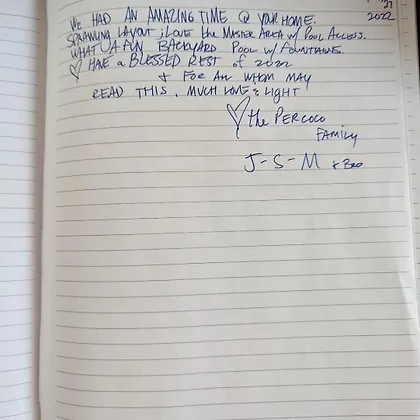 27
2022
WE HAD AN AMAZING TIME @ YOUR HOME.
SPRAWLING LAYOUT, LOVE the MASTER AREA w/ POOL ACCESS.
WHAT A FUN BACKYARD POOL w/ FOUNTAINS.
♡ HAVE a BLESSED REST of 2022
& FOR ALL WHOM MAY
READ THIS, MUCH LOVE & LIGHT
♡ the PERCOCO
FAMILY
J-S-M